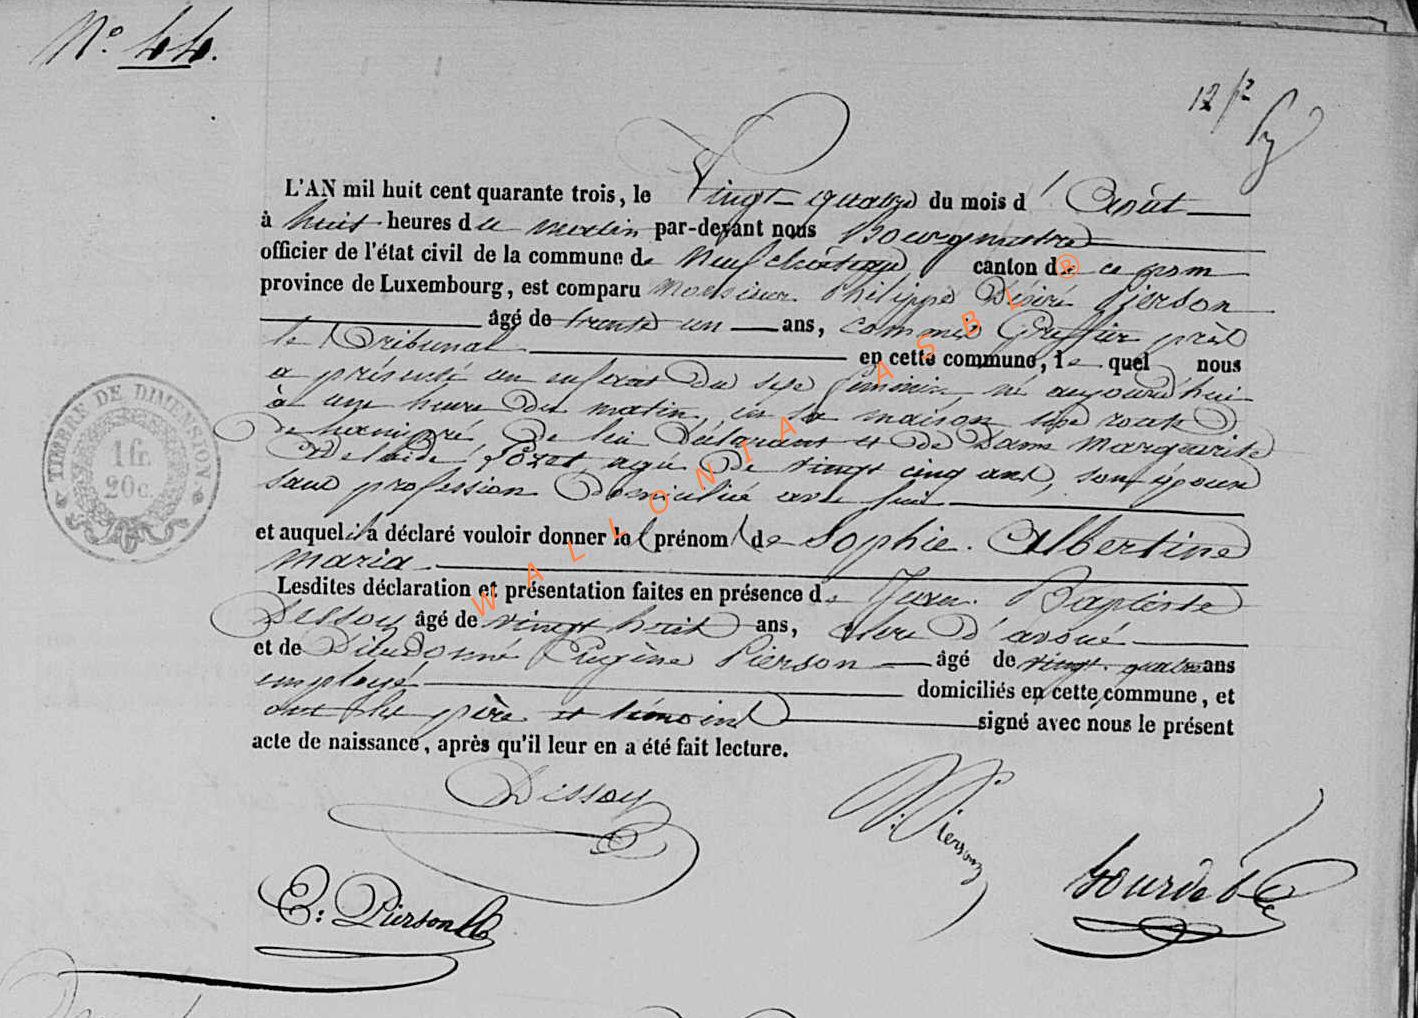 N° 44.
12
L'AN mil huit cent quarante trois, le Vingt quatre du mois d'Août
à huit heures du matin par-devant nous Bourgmestre
officier de l'état civil de la commune de Neufchâteau, canton de ce nom
province de Luxembourg, est comparu Monsieur Philippe Désiré Pierson
âgé de trente un ans, commis Greffier près
le Tribunal en cette commune, le quel nous
a présenté un enfant du sexe féminin, né aujourd'hui
à une heure du matin, en sa maison sise route
de de lui déclarant et de Dame Marguerite
Adelaïde Pozet, agée de vingt cinq ans, son épouse
sans profession domiciliée avec lui
et auquel il a déclaré vouloir donner le prénom de Sophie Albertine
Maria
Lesdites déclaration et présentation faites en présence de Jean Baptiste
Dessoy âgé de vingt huit ans, clerc d'avoué
et de Dieudonné Eugène Pierson âgé de vingt quatre ans
employé domiciliés en cette commune, et
ont les père et témoins signé avec nous le présent
acte de naissance, après qu'il leur en a été fait lecture.
Dessoy
Pierson
E: Pierson
TIMBRE DE DIMENSION
1 fr.
20 c.
WALLONIA ASBL ®